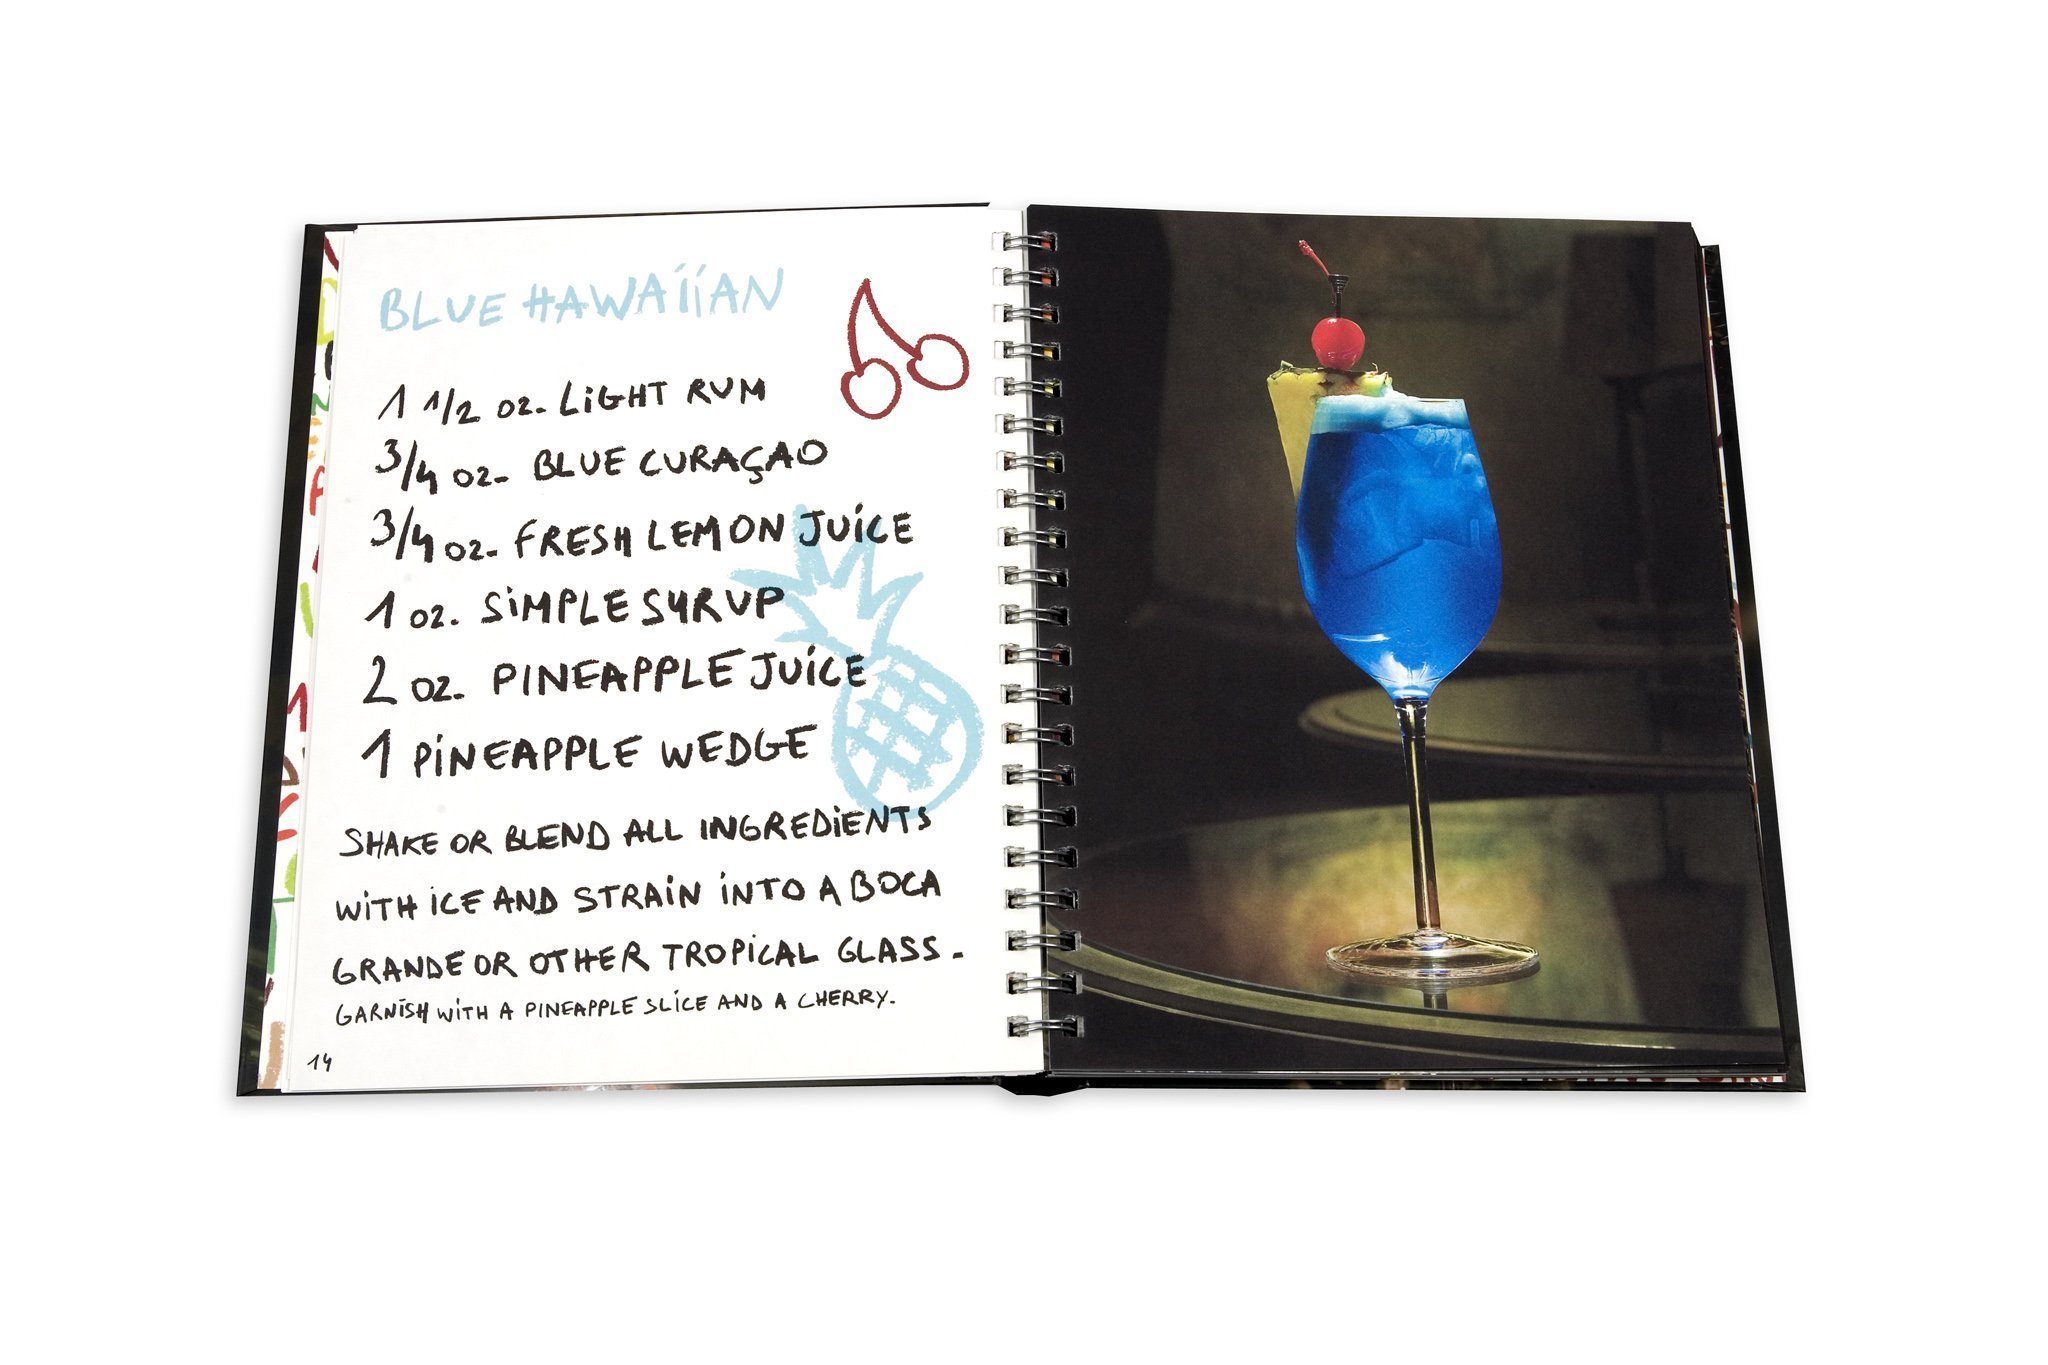 BLUE HAWAIIAN
1 1/2 oz. LIGHT RUM
3/4 oz. BLUE CURAÇAO
3/4 oz. FRESH LEMON JUICE
1 oz. SIMPLE SYRUP
2 oz. PINEAPPLE JUICE
1 PINEAPPLE WEDGE
SHAKE OR BLEND ALL INGREDIENTS
WITH ICE AND STRAIN INTO A BOCA
GRANDE OR OTHER TROPICAL GLASS.
GARNISH WITH A PINEAPPLE SLICE AND A CHERRY.
14